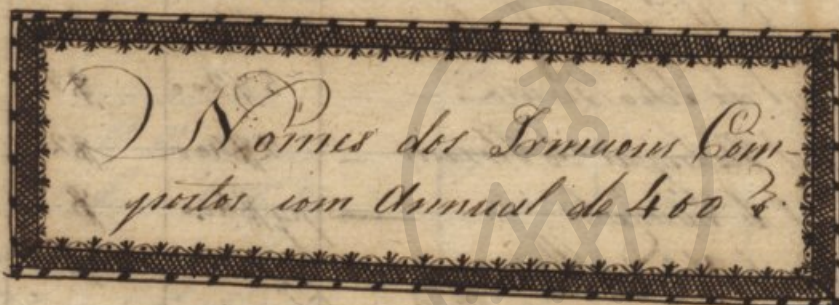 Nomes dos Irmaons Com-
postos com Annual de 400